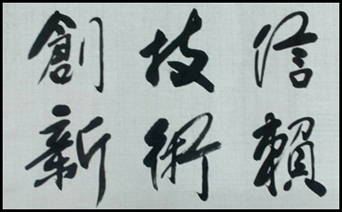 信賴
技術
創新